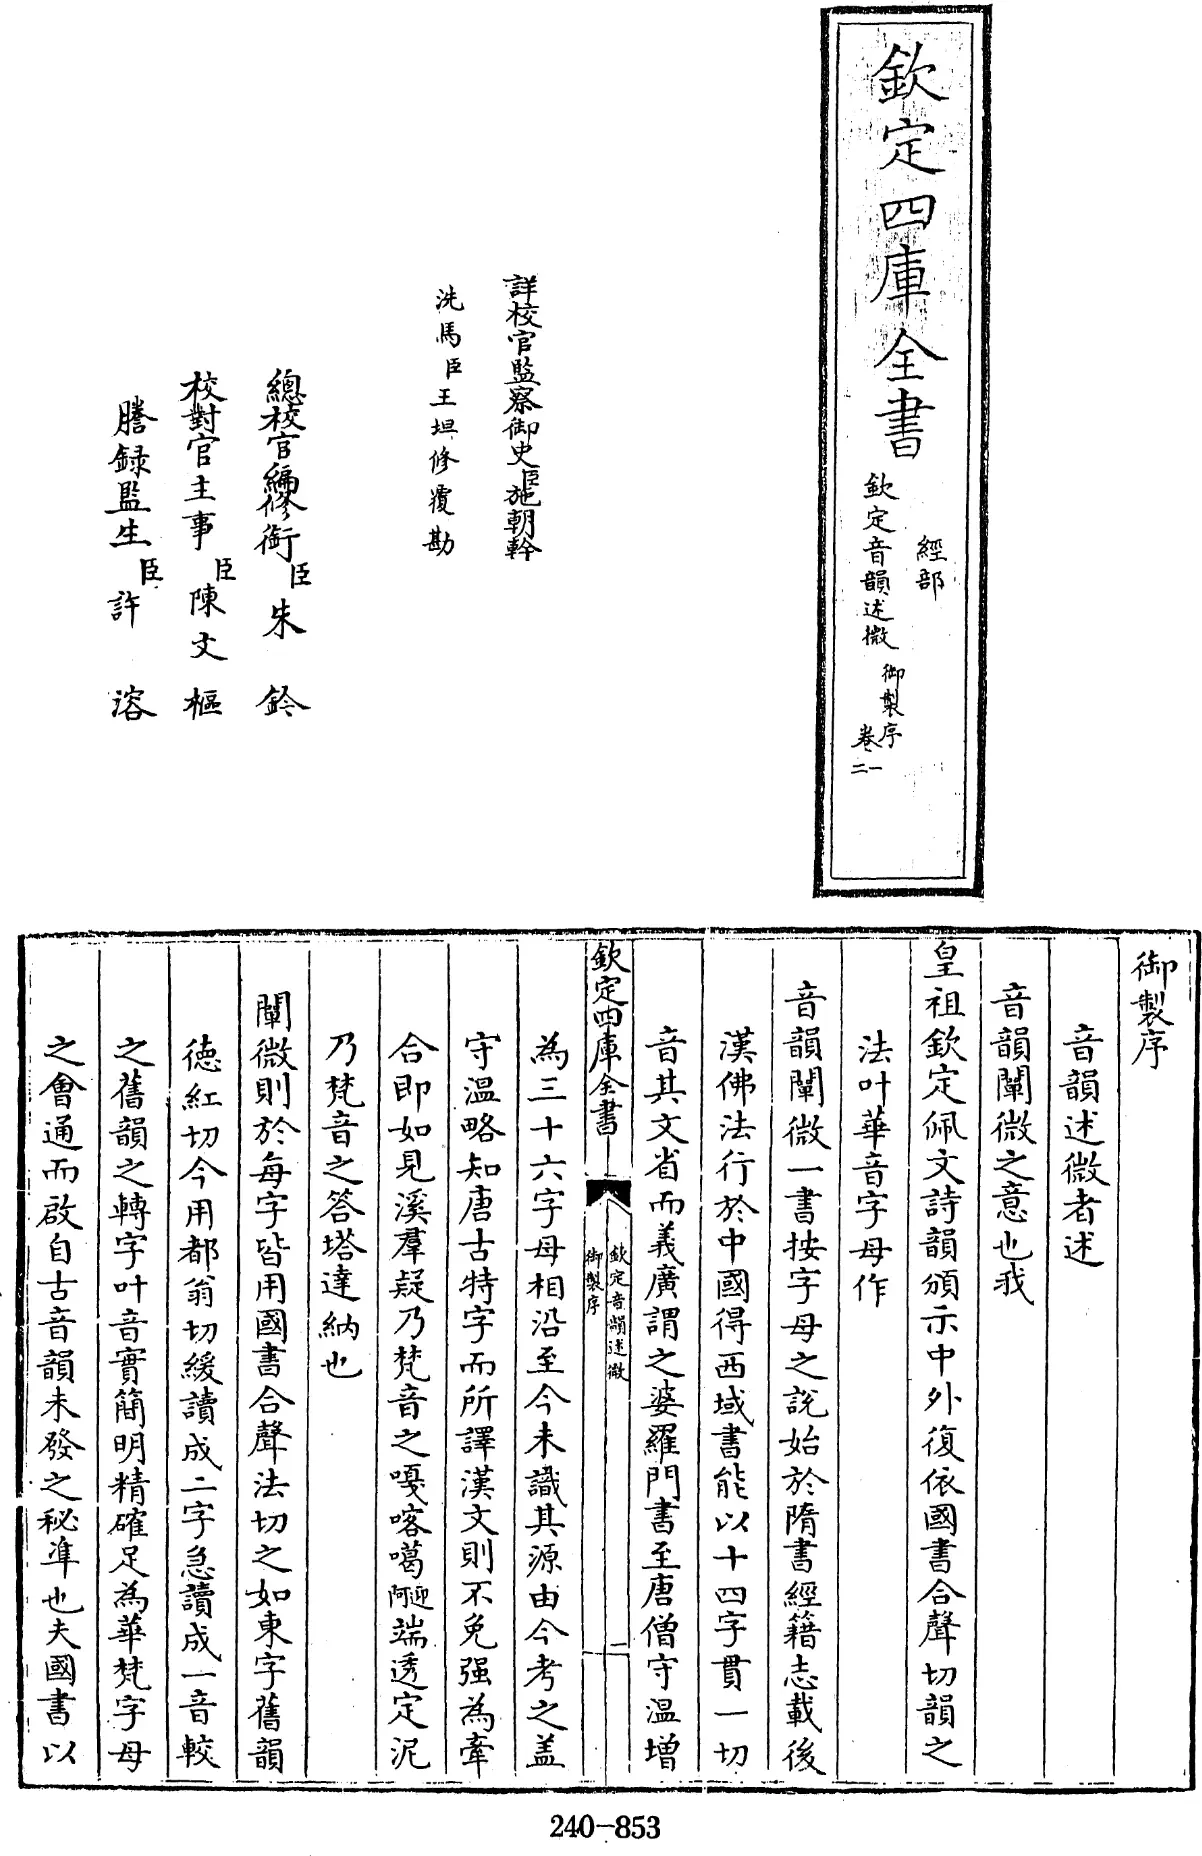 欽定四庫全書
經部
欽定音韻述微 御製序
卷一
二
詳校官監察御史臣施朝幹
洗馬臣王坦修覆勘
總校官編修銜臣朱鈐
校對官主事臣陳文樞
謄録監生臣許溶
御製序
音韻述微者述
音韻闡微之意也我
皇祖欽定佩文詩韻頒示中外復依國書合聲切韻之
法叶華音字母作
音韻闡微一書按字母之說始於隋書經籍志載後
漢佛法行於中國得西域書能以十四字貫一切
音其文省而義廣謂之婆羅門書至唐僧守溫增
欽定四庫全書
欽定音韻述微
御製序
二
為三十六字母相沿至今未識其源由今考之盖
守溫略知唐古特字而所譯漢文則不免强為牽
合即如見溪羣疑乃梵音之嘎喀噶阿迎端透定泥
乃梵音之答塔達納也
闡微則於每字皆用國書合聲法切之如東字舊韻
德紅切今用都翁切緩讀成二字急讀成一音較
之舊韻之轉字叶音實簡明精確足為華梵字母
之會通而啟自古音韻未發之秘凖也夫國書以
240-853